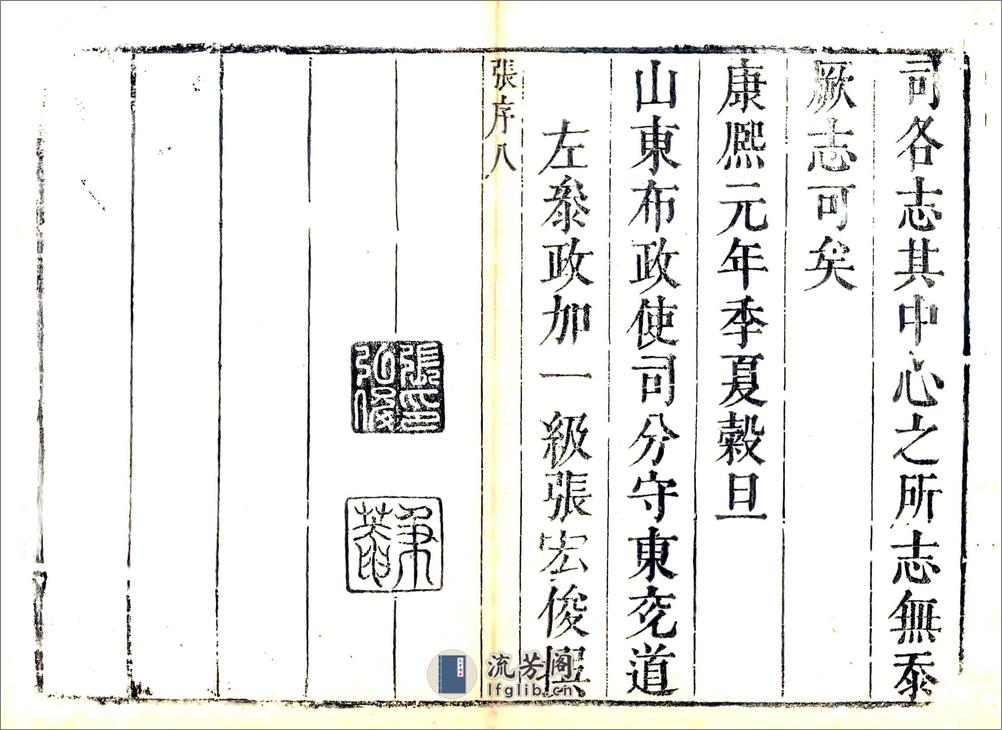 司各志其中心之所志無忝
厥志可矣
康熈元年季夏穀旦
山東布政使司分守東兖道
左叅政加一級張宏俊撰
張序八
張印弘俊
流芳阁
lfglib.cn